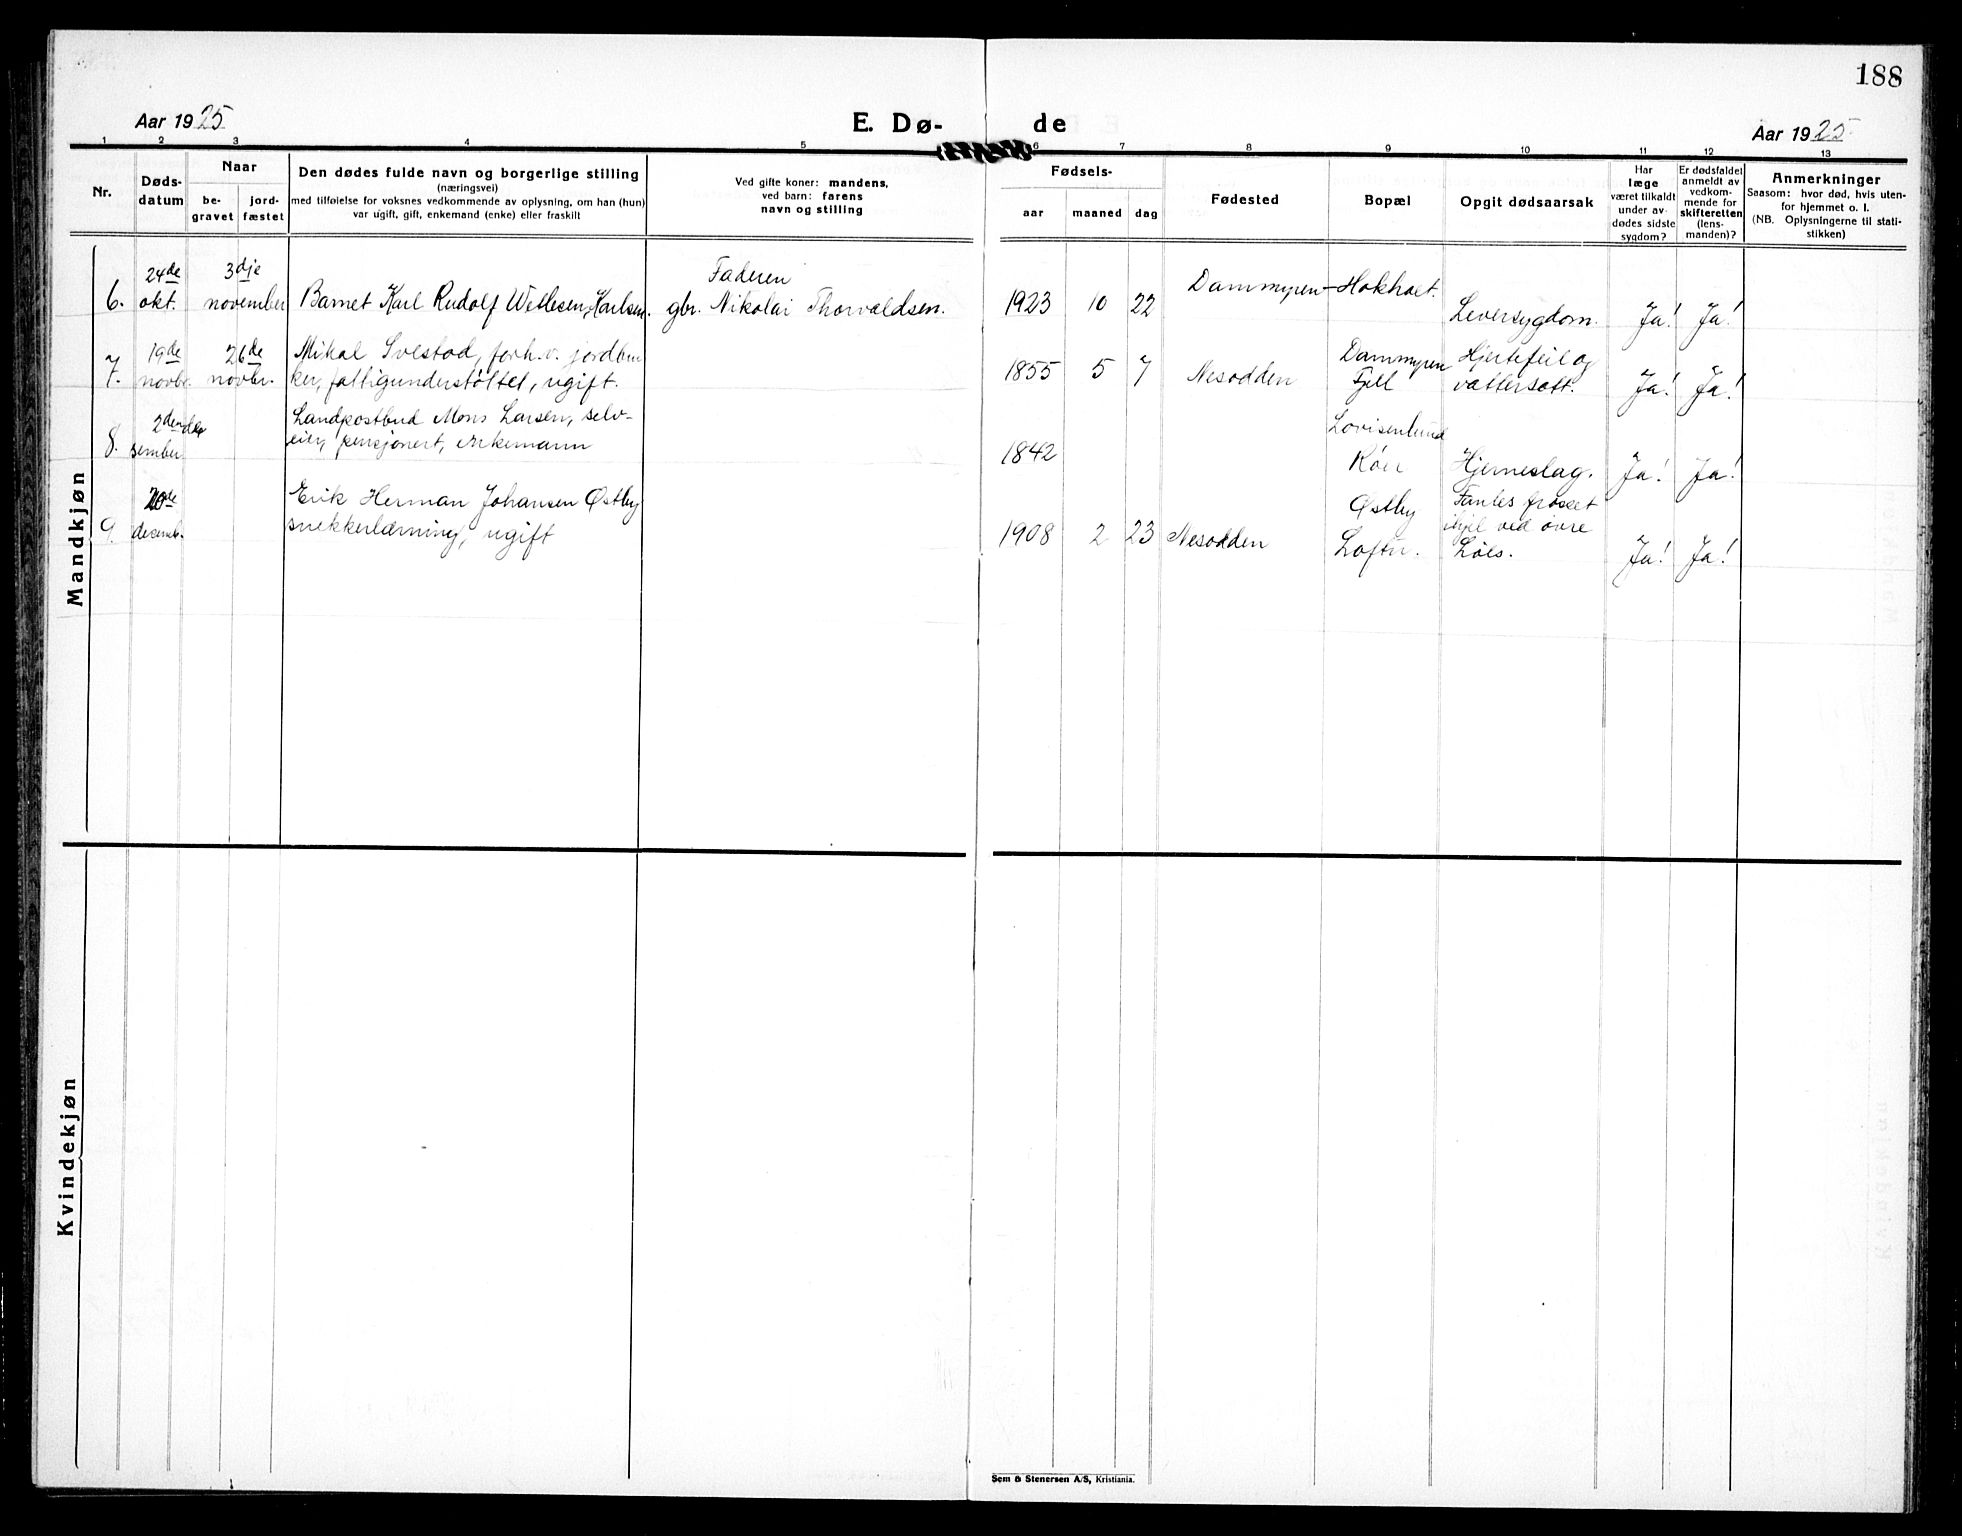 188
Aar 1925
E. Dø-
de
Aar 1925.
1 2 3 4 5 6 7 8 9 10 11 12 13
Nr.
Døds-
datum
Naar
be-
gravet
jord-
fæstet
Den dødes fulde navn og borgerlige stilling
(næringsvei)
med tilføielse for voksnes vedkommende av oplysning, om han (hun)
var ugift, gift, enkemand (enke) eller fraskilt
Ved gifte koner: mandens,
ved barn: farens
navn og stilling
Fødsels-
aar
maaned
dag
Fødested
Bopæl
Opgit dødsaarsak
Har
læge
været tilkaldt
under av-
dødes sidste
sygdom?
Er dødsfaldet
anmeldt av
vedkom-
mende for
skifteretten
(lens-
manden)?
Anmerkninger
Saasom: hvor død, hvis uten-
for hjemmet o. l.
(NB. Oplysningerne til stati-
stikken)
Mandkjøn
24de 3dje Faderen Dammyren-Hokholt.
6. okt. november Barnet Karl Rudolf Wetlesen Karlsen. gbr. Nikolai Thorvaldsen. 1923 10 22 Leversygdom. Ja! Ja!
19de 26de Mikal Svestad, forh.v. jordbru Dammyren Hjertefeil og
7. novbr. novbr. ker, fattigunderstöttet, ugift. 1855 5 7 Nesodden Fjell vattersott. Ja! Ja!
2den de Landpostbud Mons Larsen, selv- Lovisenlund
8. sember eier, pensjonert, enkemann 1842 Röer Hjerneslag. Ja! Ja!
20de Erik Herman Johansen Østby Østby Fantes frosset
9. decemb. snekkerlærning, ugift 1908 2 23 Nesodden Loftu. ihjel ved övre
Löes. Ja! Ja!
Kvindekjøn
Sem & Stenersen A/S, Kristiania.